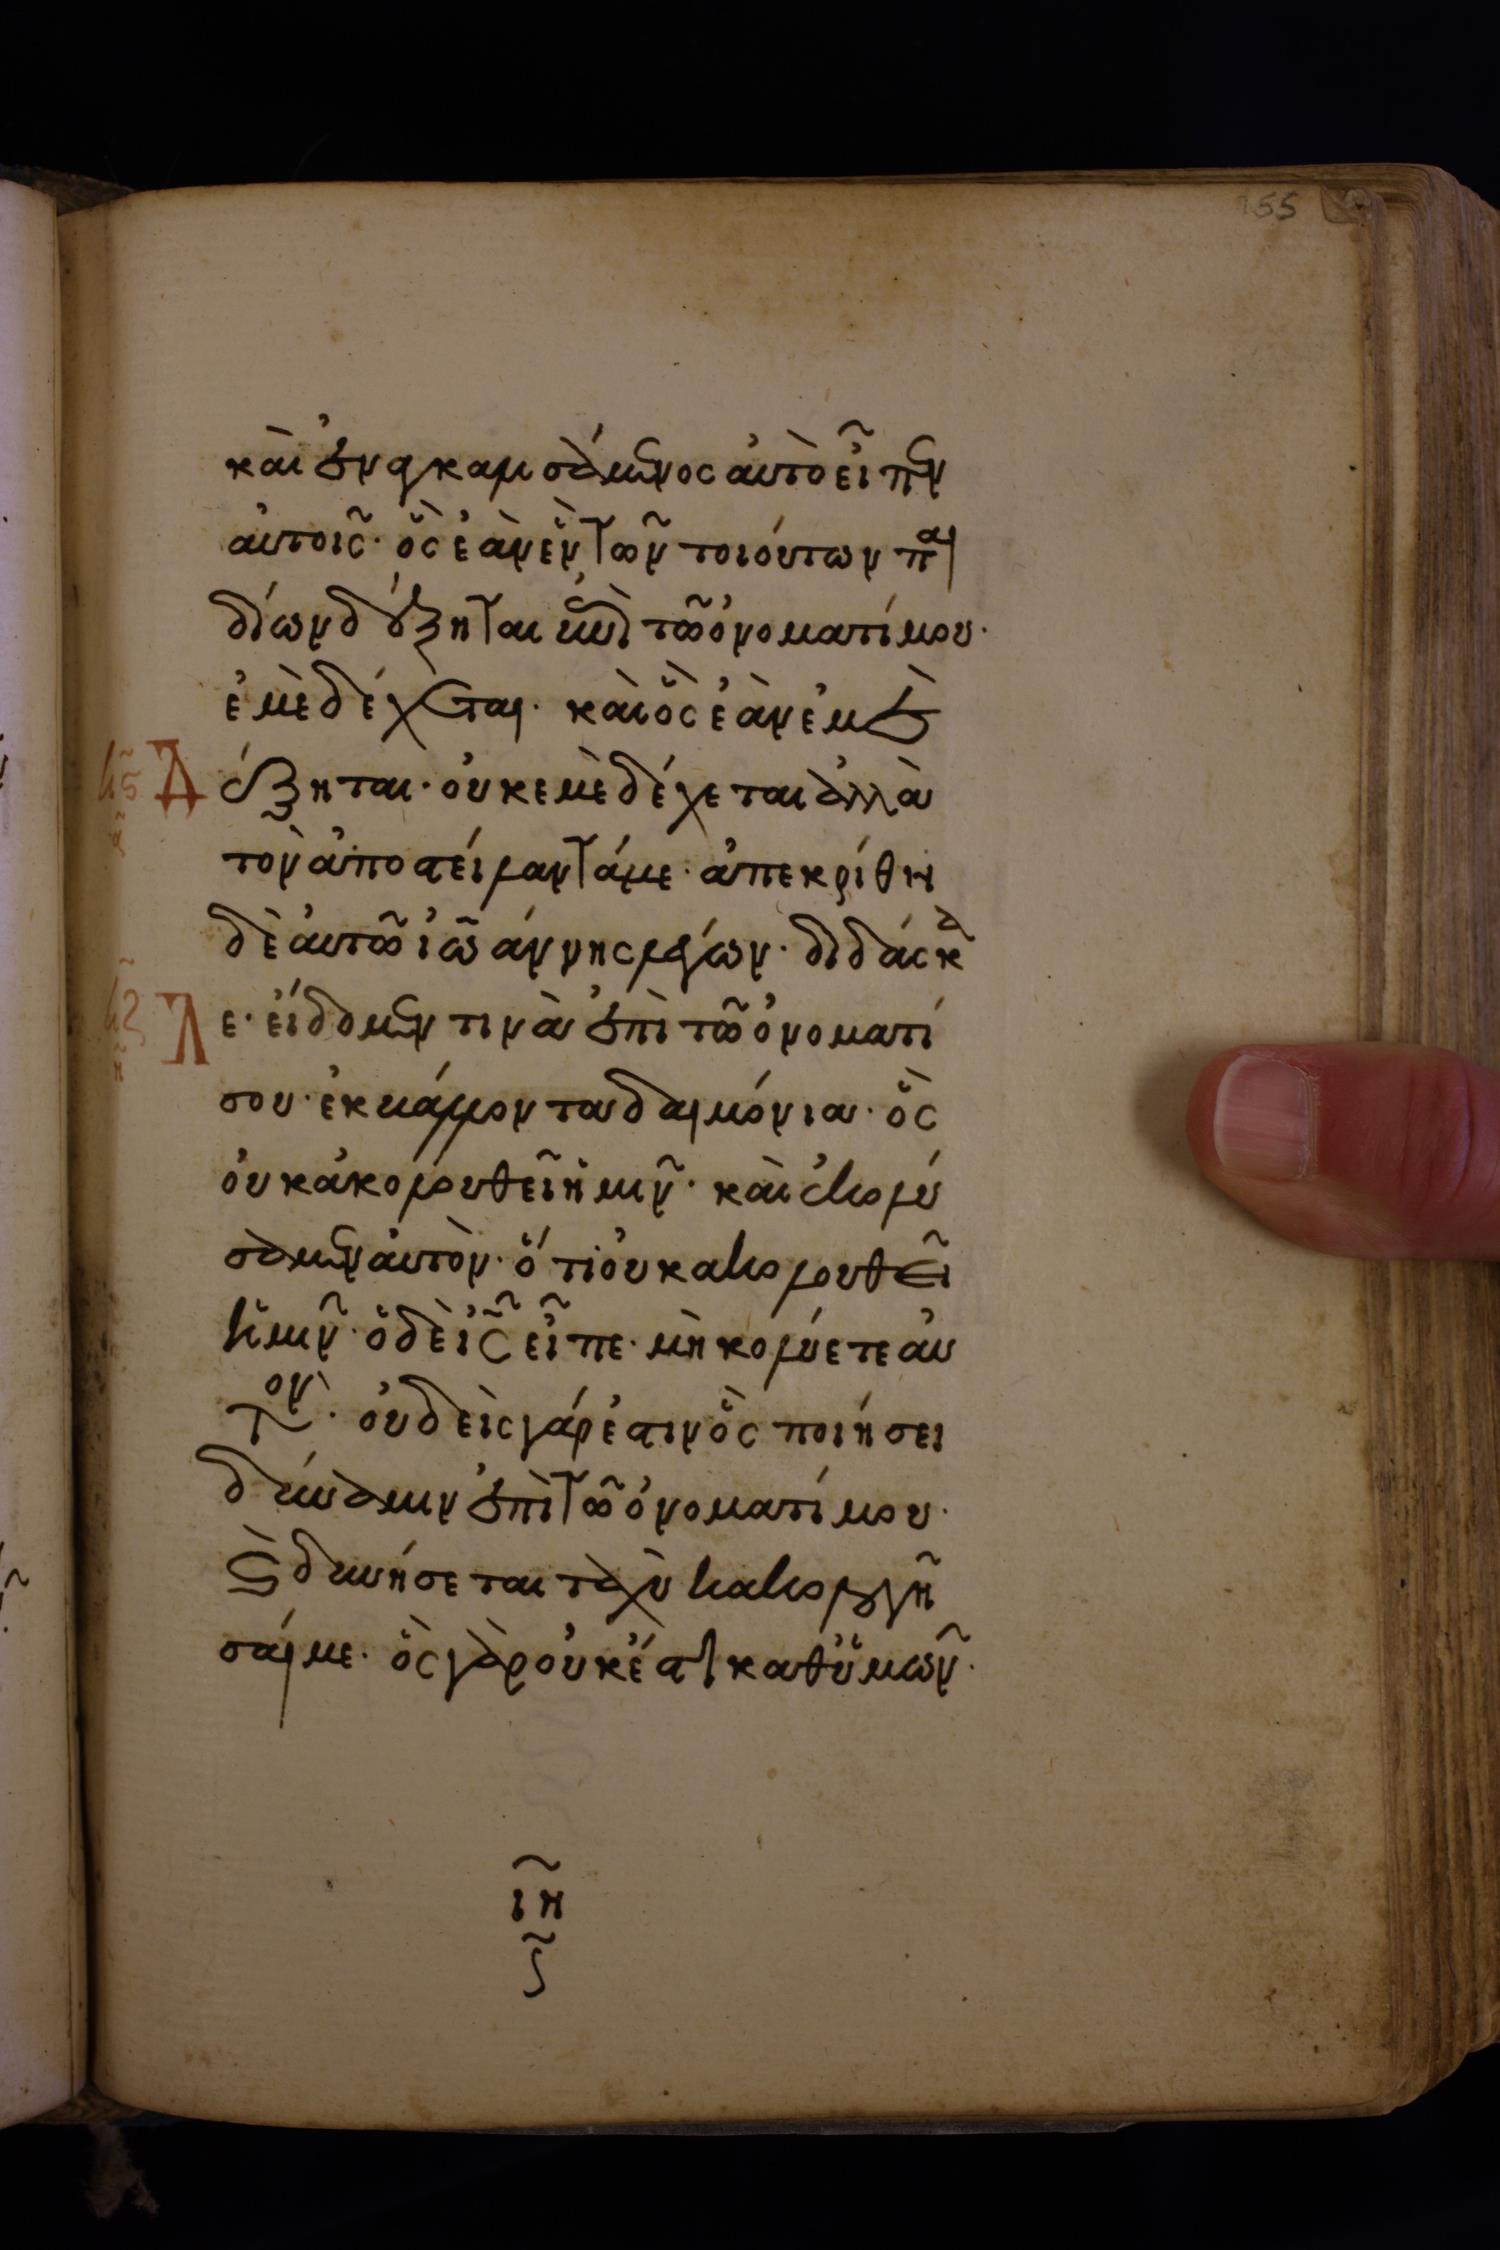 155
καὶ ἐναγκαλισάμενος αὐτὸ εἶπεν
αὐτοῖς· ὃς ἐὰν ἓν τῶν τοιούτων παι
δίων δέξηται ἐπὶ τῶ ὀνόματί μου·
ἐμὲ δέχεται· καὶ ὃς ἐὰν ἐμὲ
Δέξηται· οὐκ ἐμὲ δέχεται ἀλλὰ
τὸν ἀποστείλαντά με· ἀπεκρίθη
δὲ αὐτῶ ἰωάννης λέγων· διδάσκα
Λε· εἴδομεν τινὰ ἐπὶ τῶ ὀνόματί
σου· ἐκβάλλοντα δαιμόνια· ὃς
οὐκ ἀκολουθεῖ ἡμῖν· καὶ ἐκωλύ
σαμεν αὐτὸν· ὅτι οὐκ ἀκολουθεῖ
ἡμῖν· ὁ δὲ ι̅ς̅ εἶπε· μὴ κωλύετε αὐ
τὸν· οὐδεὶς γάρ ἐστιν ὃς ποιήσει
δύναμιν ἐπὶ τῶ ὀνόματί μου·
καὶ δυνήσεται ταχὺ κακολογῆ
σαί με· ὃς γὰρ οὐκ ἔστι καθ' ὑμῶν·
ιη
ς